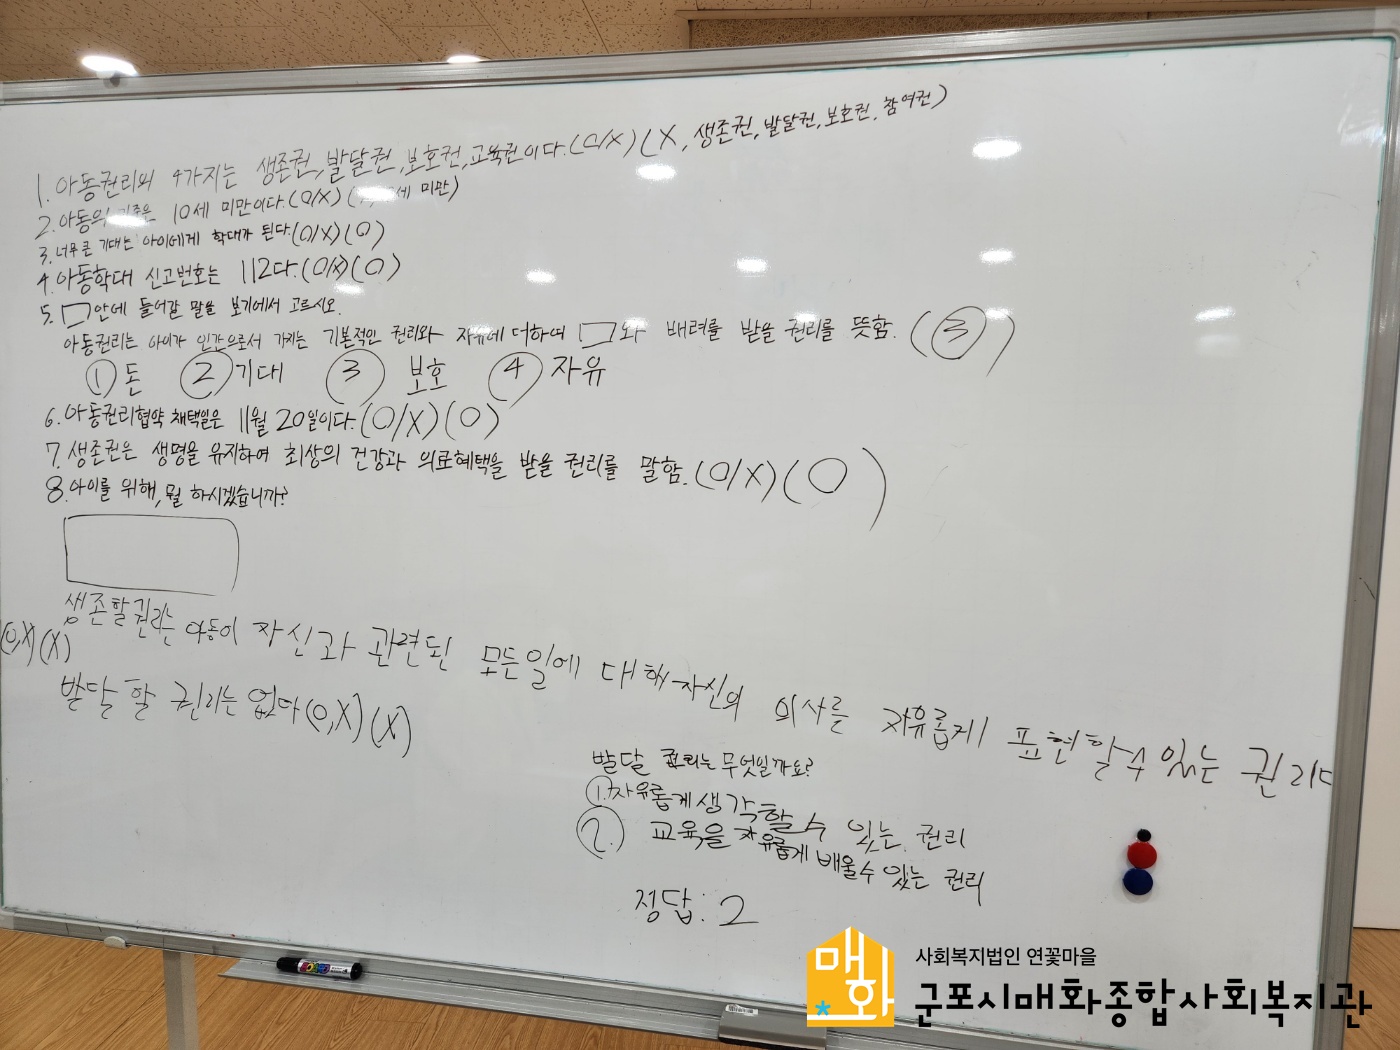 1. 아동권리의 4가지는 생존권, 발달권, 보호권, 교육권이다.(O/X) (X, 생존권, 발달권, 보호권, 참여권)
2. 아동의 기준은 10세 미만이다.(O/X) ( 세 미만)
3. 너무 큰 기대는 아이에게 학대가 된다.(O/X)(O)
4. 아동학대 신고번호는 112다.(O/X)(O)
5. □안에 들어갈 말을 보기에서 고르시오.
아동권리는 아이가 인간으로서 가지는 기본적인 권리와 자유에 더하여 □와 배려를 받을 권리를 뜻함. (③)
① 돈 ② 기대 ③ 보호 ④ 자유
6. 아동권리협약 채택일은 11월 20일이다.(O/X)(O)
7. 생존권은 생명을 유지하여 최상의 건강과 의료혜택을 받을 권리를 말함.(O/X)(O)
8. 아이를 위해, 뭘 하시겠습니까?
생존할권리는 아동이 자신과 관련된 모든일에 대해 자신의 의사를 자유롭게 표현할 수 있는 권리다
(O,X)(X)
발달 할 권리는 없다(O,X)(X)
발달 권리는 무엇일까요?
①.자유롭게 생각할 수 있는 권리
②. 교육을 자유롭게 배울 수 있는 권리
정답: 2
BOARD
매화
사회복지법인 연꽃마을
군포시매화종합사회복지관